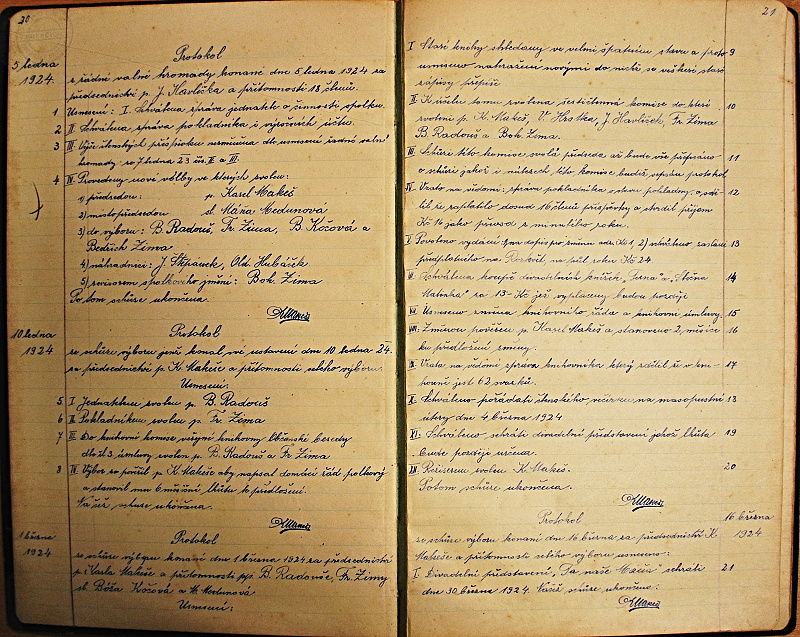 20
5 ledna
1924.
Protokol
z řádné valné hromady konané dne 5 ledna 1924 za
předsednictví p. J. Havlíčka a přítomnosti 18 členů.
1 Usnesení: I. Schválena zpráva jednatele o činnosti spolku.
2 II. Schválena zpráva pokladníka i výročních účtů.
3 III. Výše členských příspěvků dle usnesení řádné valné
hromady ze 7 ledna 23 čís. II a III.
4 IV. Provedeny nové volby ve kterých zvolen:
1) předsedou: p. Karel Makeš
2) místopředsedou sl. Máňa Medunová
3) do výboru: B. Radouš, Fr. Zima, B. Kočová a
Bedřich Zima
4) náhradníci: J. Štěpánek, Old. Hubáček
5) revisorem spolkového jmění: Boh. Zima
Po tom schůze ukončena.
KMakeš
10 ledna
1924
Protokol
ze schůze výboru jenž konal ve ustavení dne 10 ledna 24.
za předsednictví p. K. Makeše a přítomnosti celého výboru.
Usnesení:
5 I Jednatelem zvolen p. B. Radouš
6 II Pokladníkem zvolen p. Fr. Zima
7 III Do knihovní komise veřejné knihovny Občanské besedy
dle čl. 3 úmluvy zvolen p. B. Radouš a Fr. Zima
8 IV. Výbor se požádal p. K. Makeše aby napsal domácí řád spolkový
a stanovil mu 6 měsíční lhůtu k předložení.
Načež schůze ukončena.
KMakeš
1 března
1924
Protokol
ze schůze výboru konané dne 1 března 1924 za předsednictví
p. Karla Makeše a přítomnosti pp. B. Radouše, Fr. Zimy
sl. Boža Kočová a M. Medunová
Usnesení:
21
I Staré knihy shledány ve velmi špatném stavu a proto 9
usneseno nahražení novými do nichž se veškeré staré
zápisy přepíše
II. K účelu tomu zvolena šestičlenná komise do které 10
zvoleni p. K. Makeš, V. Hrstka, J. Havlíček, Fr. Zima
B. Radouš a Boh. Zima.
III. Schůzi této komise svolá předseda až bude vše přepsáno 11
o schůzi jakož i nálezech této komise budiž sepsán protokol
IV. Vzato na vědomí: zpráva pokladníka o stavu pokladny, a sdě-
lil že zaplatilo dosud 16 členů příspěvky a obdržel příjem 12
Kč 16 jako převod z minulého roku.
V. Kč 1, 2) schváleno zaslání 13
předplatného na půl roku Kč 24.
VI. Schválena koupě divadelních knížek "Perna" a "Slečna 14
Matinka" za 13 Kč jež vyplaceny budou později
VII. Usnesena změna knihovního řádu a knihovní úmluvy. 15
VIII. Změnou pověřen p. Karel Makeš a stanoveno 2 měsíce 16
ku předložení změny.
IX. Vzata na vědomí zpráva knihovníka který sdělil že v kni- 17
hovně jest 62 svazků.
X. Schváleno pořádati členského večírku na masopustní 18
úterý dne 4 března 1924
XI. Schváleno sehráti divadelní představení jehož lhůta 19
bude později určena.
XII. Režiserem zvolen K. Makeš. 20
Potom schůze ukončena.
KMakeš
16 března
1924
Protokol
ze schůze výboru konané dne 16 března za předsednictví K.
Makeše a přítomnosti celého výboru usneseno:
I. Divadelní představení "Ta naše Máňa" sehráti 21
dne 30 března 1924. Načež schůze ukončena.
KMakeš